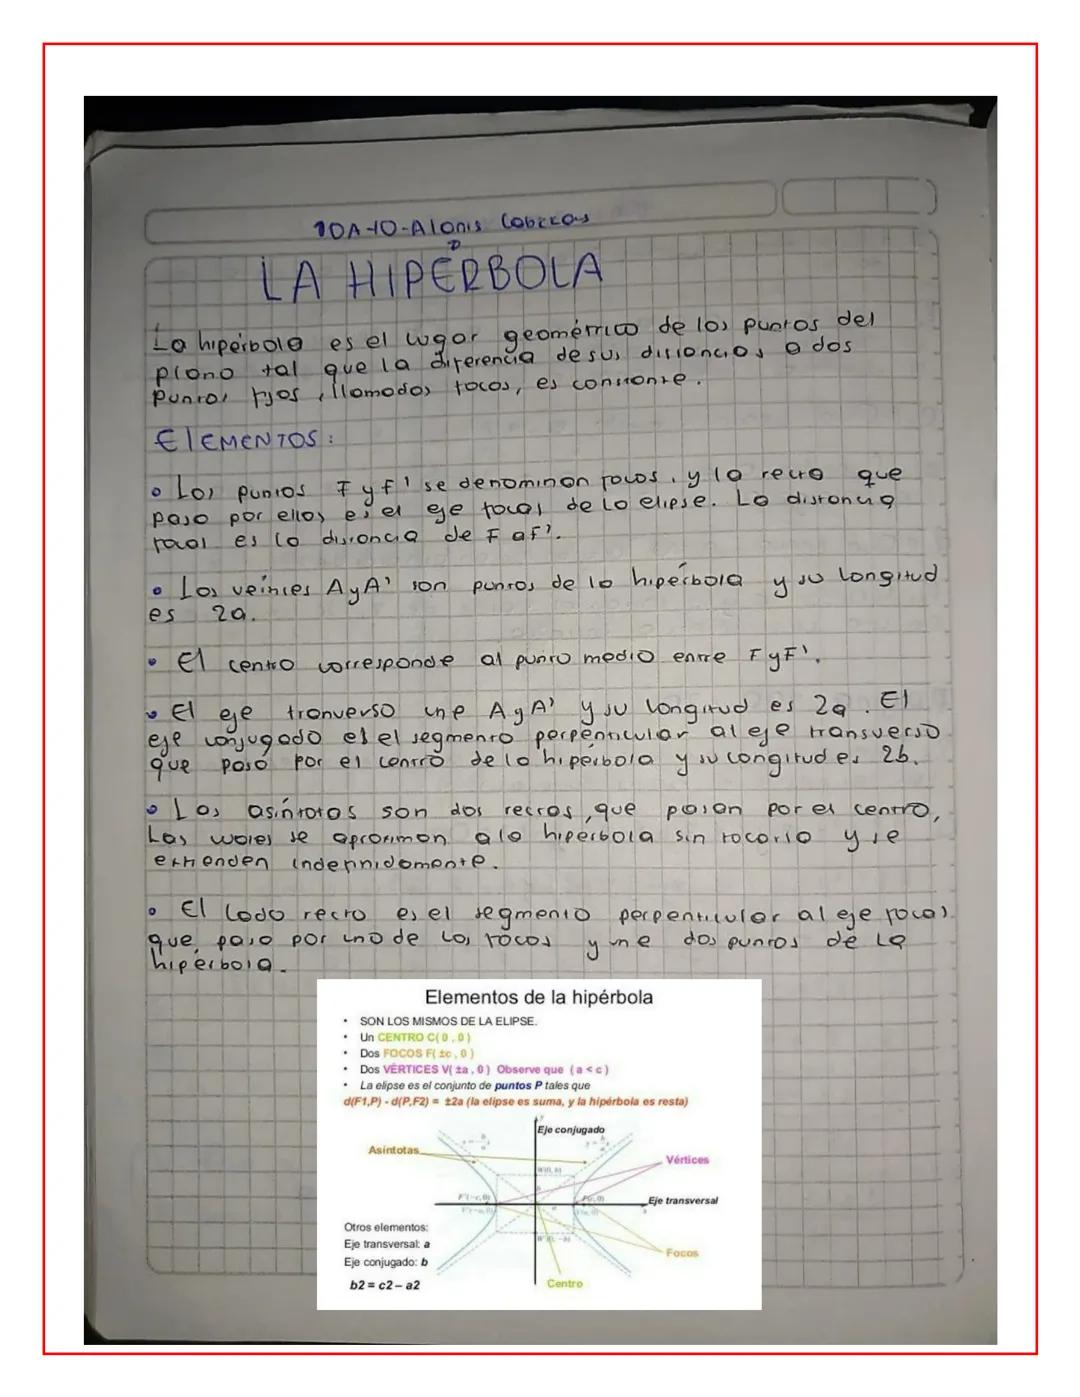 10A-10-Alanis Cabezas
LA HIPÉRBOLA
La hipérbola es el lugar geométrico de los puntos del
plano tal que la diferencia de sus distancias a dos
puntos fijos, llamados focos, es constante.
ElEMENTOS:
• Los puntos F y F' se denominan focos, y la recta que
pasa por ellos es el eje focal de la elipse. La distancia
focal es la distancia de F a F'.
• Los vértices A y A' son puntos de la hipérbola y su longitud
es 2a.
• El centro corresponde al punto medio entre F y F'.
• El eje tranverso une A y A' y su longitud es 2a. El
eje conjugado es el segmento perpenticular al eje transverso
que pasa por el centro de la hipérbola y su longitud es 2b.
• Las asíntotas son dos rectas, que pasan por el centro,
Las cuales se aproximan a la hipérbola sin tocarla y se
extienden indefinidamente.
• El lado recto es el segmento perpenticular al eje focal
que pasa por uno de los focos y une dos puntos de la
hipérbola.
Elementos de la hipérbola
• SON LOS MISMOS DE LA ELIPSE.
• Un CENTRO C(0,0)
• Dos FOCOS F(±c,0)
• Dos VÉRTICES V(±a,0) Observe que (a<c)
• La elipse es el conjunto de puntos P tales que
d(F1,P) - d(P,F2) = ±2a (la elipse es suma, y la hipérbola es resta)
Eje conjugado
Asíntotas
Vértices
F'(-c,0)
Eje transversal
Otros elementos:
Eje transversal: a
Eje conjugado: b
Focos
b2 = c2 – a2
Centro